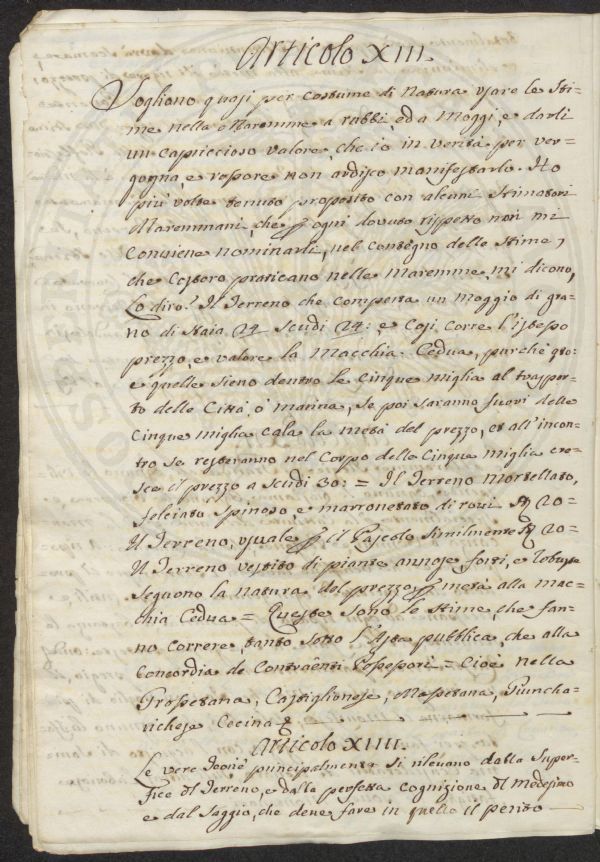 Articolo XIII.
Vogliono quasi per costume di Natura usare le Sti-
me nelle Maremme a rubbi, ed a Moggi, e darli
un capriccioso valore, che io in verità per ver-
gogna, e rossore non ardisco manifestarlo. Ho
più volte tenuto proposito con alcuni Stimatori
Maremmani, che ogni dovuto rispetto non mi
Conviene nominarli, nel Contegno delle Stime,
che Costoro praticano nelle Maremme, mi dicono,
Lo diro? Il Terreno che Comporta un moggio di gra-
no di Staia 24 Scudi 24: e Così corre l'istesso
prezzo, e valore la Macchia Cedua, purchè que-
e quelle sieno dentro le Cinque miglia al traspor-
to delle Città, ò marina, Se poi Saranno fuori delle
Cinque miglia cala la metà del prezzo, et all'incon-
tro se resteranno nel Corpo delle Cinque miglia cre-
sce il prezzo a Scudi 30: = Il Terreno Mortellato,
Selciato Spinoso, e marronetato di rovi 20=
Il Terreno, usuale il Pascolo Similmente 20=
Il Terreno vestito di piante annose forti, e robuste
Seguono la natura del prezzo metà alla mac-
chia Cedua = Queste Sono le Stime, che fan-
no correre tanto Sotto l'Asta pubblica, che alla
Concordia de Contraenti = Cioè nella
Grossetana, Castiglionese, Massetana, Piuncha-
vichese Cecina
Articolo XIIII.
Le vere principalmente Si rilevano dalla Super-
fice dl Terreno, e dalla perfetta cognizione dl Medesimo
e dal Saggio, che deve fare in quello il perito